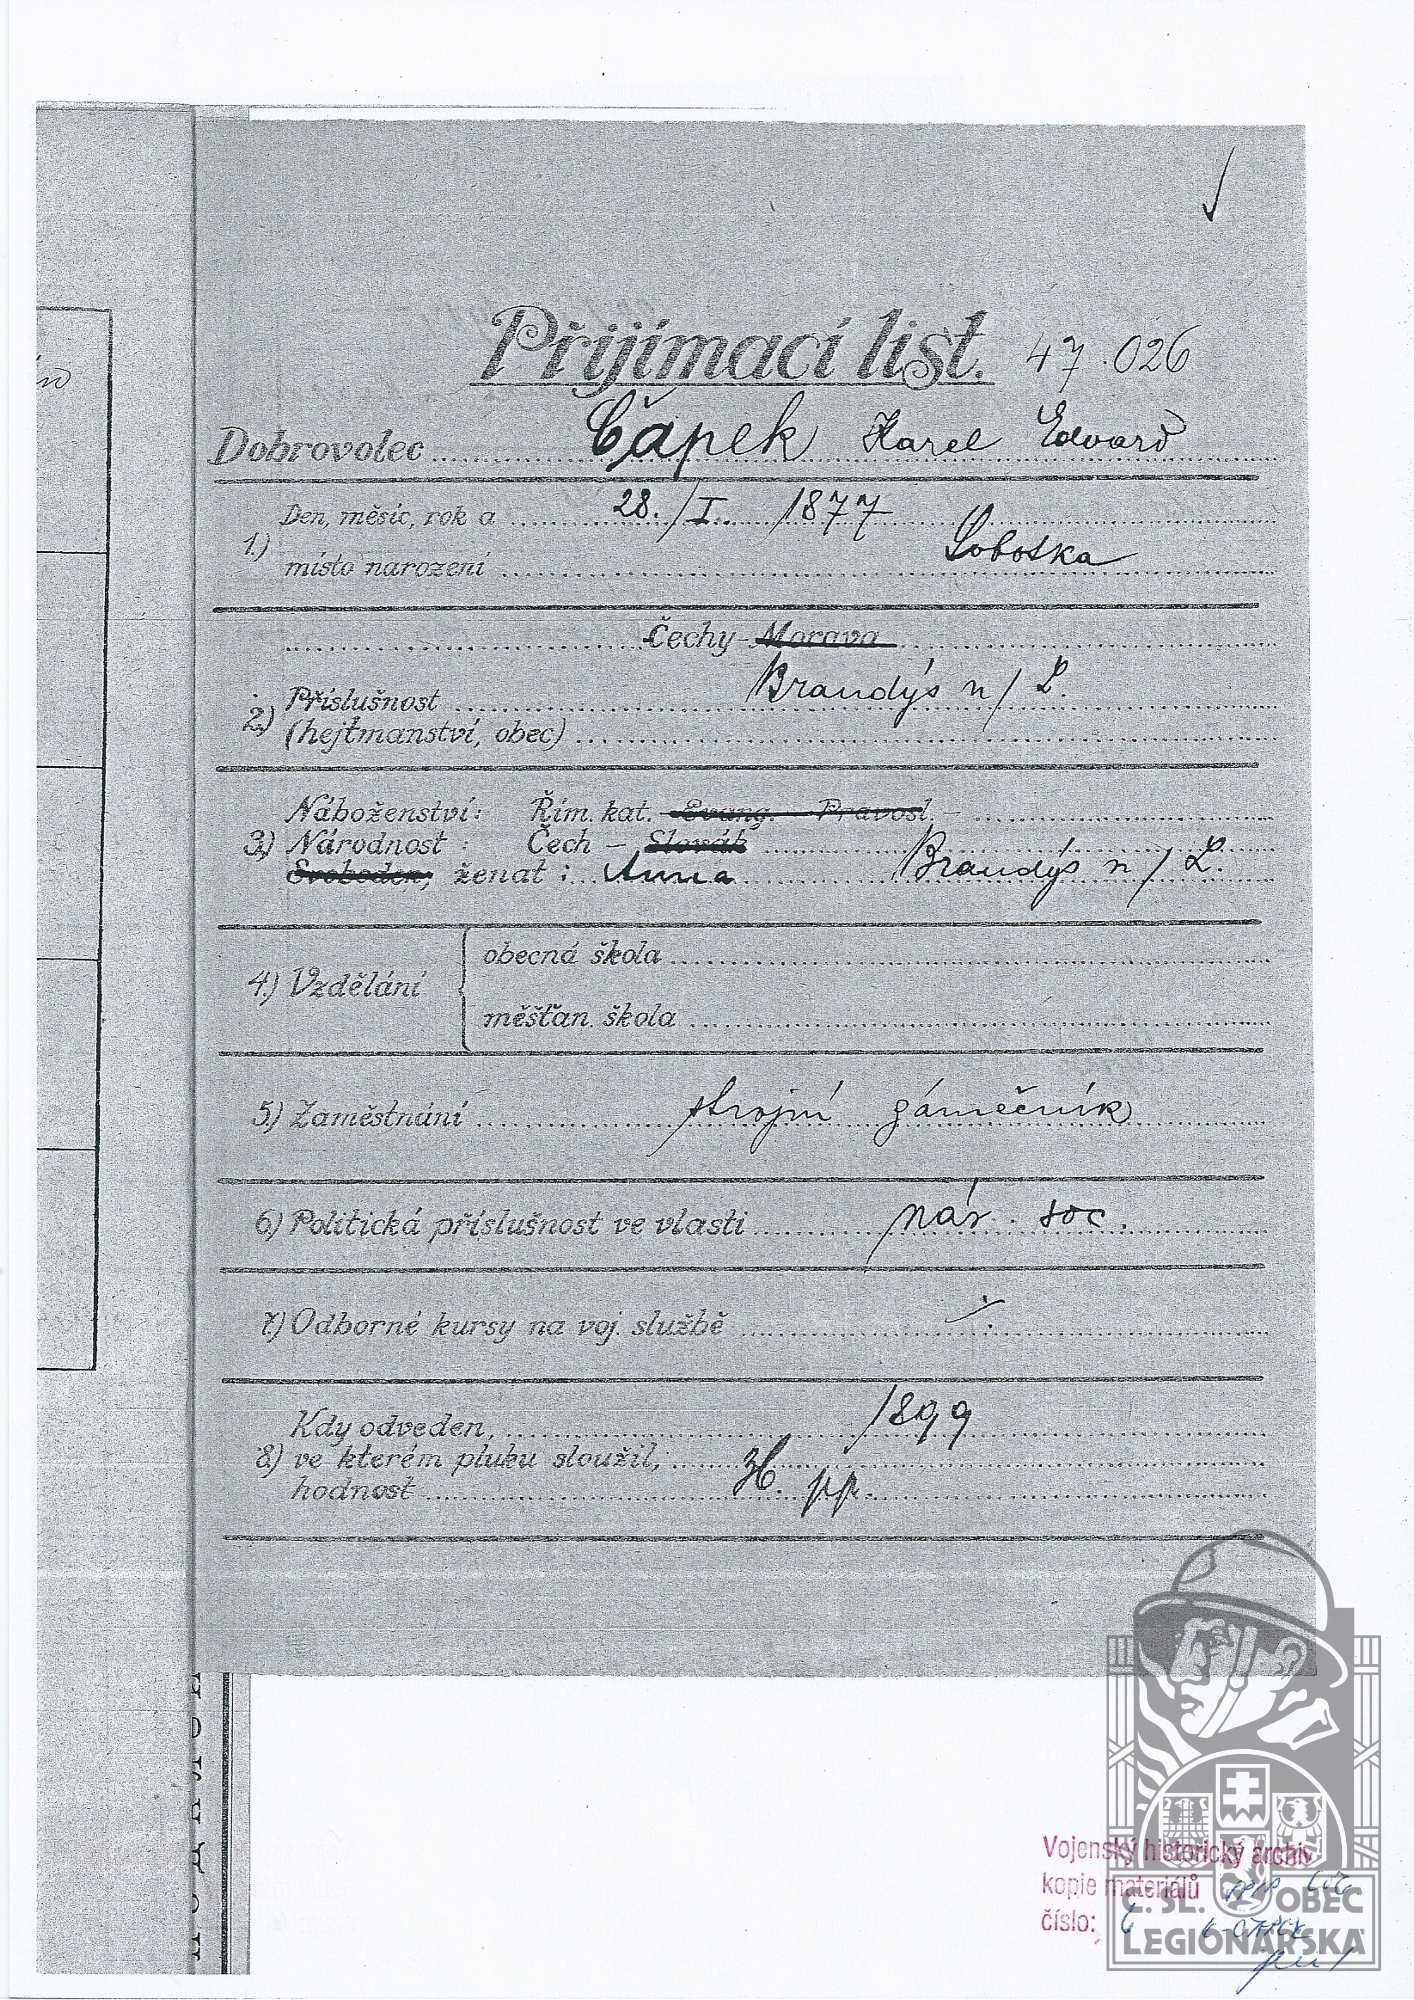 Přijímací list. 47.026
Dobrovolec Čapek Karel Edvard
1.) Den, měsíc, rok a 28./I. 1877
místo narození Sobotka
Čechy - Morava
2.) Příslušnost Brandýs n/L.
(hejtmanství, obec)
Náboženství: Řím. kat. - Evang. - Pravosl. -
3.) Národnost: Čech - Slovák
Svoboden, ženat: Anna Brandýs n/L.
4.) Vzdělání
obecná škola
měšťan. škola
5.) Zaměstnání strojní zámečník
6.) Politická příslušnost ve vlasti nár. soc.
7.) Odborné kursy na voj. službě
Kdy odveden, 1899
8.) ve kterém pluku sloužil, pp.
hodnost
Vojenský historický archiv
kopie materiálů
číslo:
Č. SL. OBEC
LEGIONÁŘSKÁ